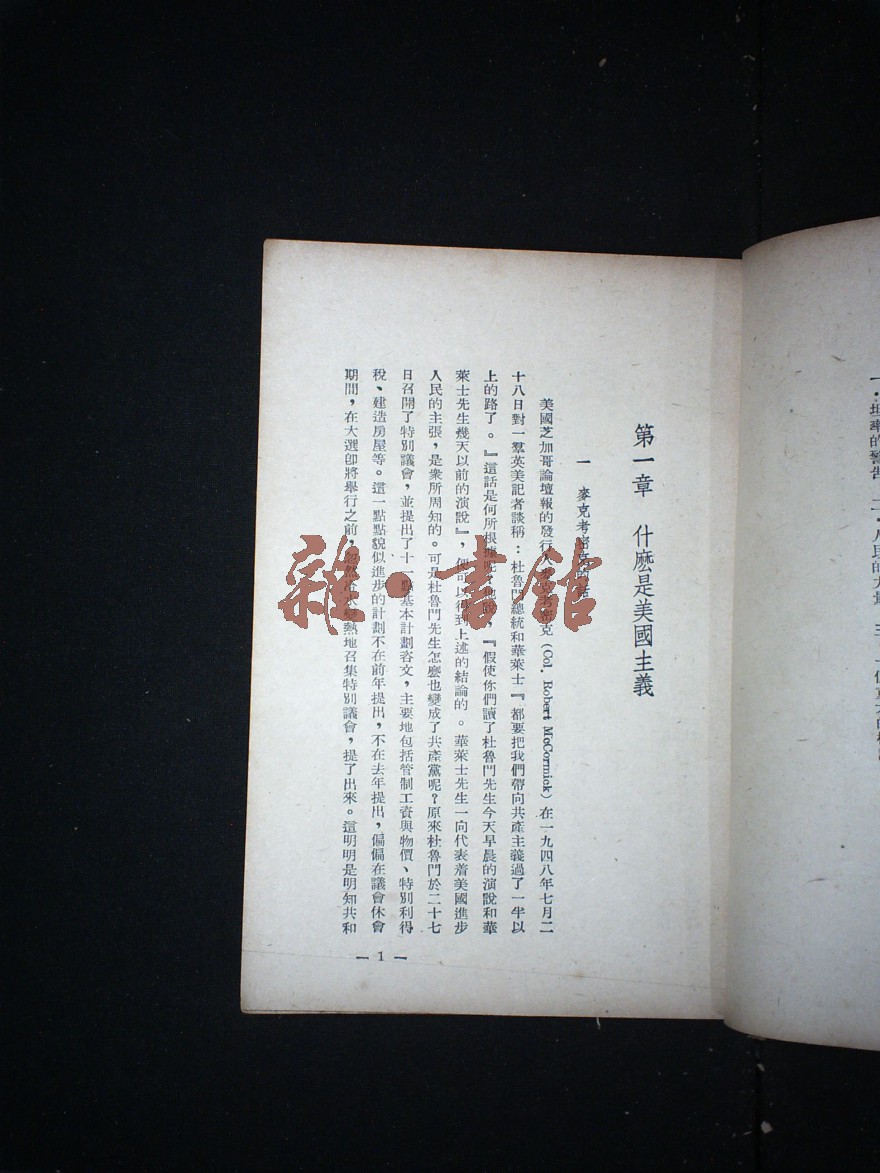 第一章　什麽是美國主義
一　麥克考密克的話
美國芝加哥論壇報的發行人麥克考密克（Col. Robert McCormick）在一九四八年七月二
十八日對一羣英美記者談稱：杜魯門總統和華萊士『都要把我們帶向共產主義過了一半以
上的路了。』這話是何所根據呢？他說，『假使你們讀了杜魯門先生今天早晨的演說和華
萊士先生幾天以前的演說』，便可以得到上述的結論的。華萊士先生一向代表着美國進步
人民的主張，是衆所周知的。可是杜魯門先生怎麽也變成了共產黨呢？原來杜魯門於二十七
日召開了特別議會，並提出了十一點基本計劃咨文，主要地包括管制工資與物價、特別利得
稅、建造房屋等。這一點點貌似進步的計劃不在前年提出，不在去年提出，偏偏在議會休會
期間，在大選卽將舉行之前，熱地召集特別議會，提了出來。這明明是明知共和
— 1 —
一．坦率的警告　二．人民的力量　三．一個
雜·書館